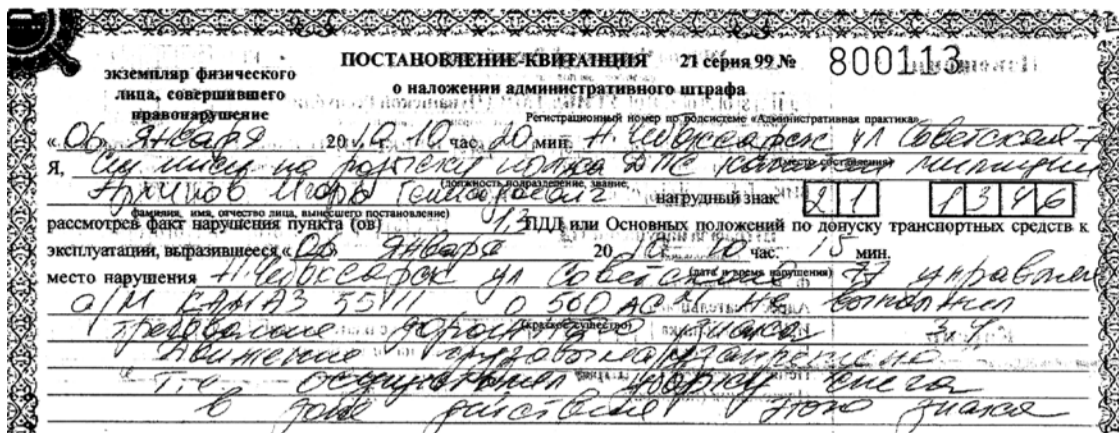 экземпляр физического
лица, совершившего
правонарушение
ПОСТАНОВЛЕНИЕ-КВИТАНЦИЯ 21 серия 99 № 800113
о наложении административного штрафа
Регистрационный номер по подсистеме «Административная практика»
«06» января 20 10 г. 10 час. 20 мин. Н. Чебоксарск ул Советская
(место составления)
Я, на полка ДПС милиции
(должность, подразделение, звание,
Архипов Игорь нагрудный знак 21 1346
фамилия, имя, отчество лица, вынесшего постановление)
рассмотрев факт нарушения пункта (ов) 1,3 ПДД или Основных положений по допуску транспортных средств к
эксплуатации, выразившееся «06» января 20 10 г. 10 час. 15 мин.
(дата и время нарушения)
место нарушения Н. Чебоксарск ул Советская 77 управляя
а/м КАМАЗ 5511 о 560 АС 21 не выполнил
(краткое существо)
требование дорожного знака 3.4
Движение грузовым запрещено
т.е. осуществлял уборку снега
в зоне действия этого знака